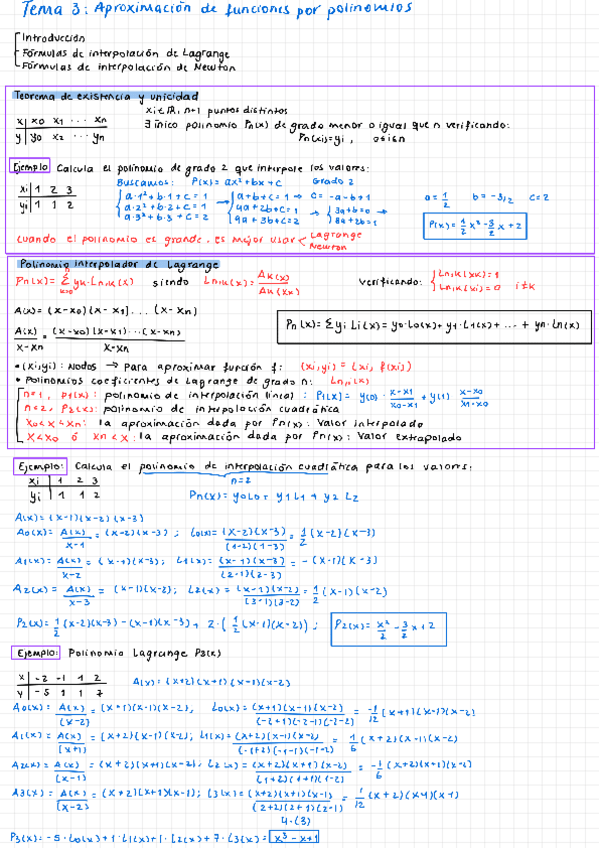 Tema 3: Aproximación de funciones por polinomios
Introducción
Fórmulas de interpolación de Lagrange
Fórmulas de interpolación de Newton
Teorema de existencia y unicidad
xi ∈ ℝ, n+1 puntos distintos
x | x0 x1 ... xn
∃ único polinomio Pn(x) de grado menor o igual que n verificando:
y | y0 x2 ... yn
Pn(xi)=yi , 0≤i≤n
Ejemplo Calcula el polinomio de grado 2 que interpole los valores:
Buscamos: P(x) = ax²+bx+c Grado 2
xi | 1 2 3
yi | 1 1 2
a·1²+b·1+c=1
a·2²+b·2+c=1
a·3²+b·3+c=2
a+b+c=1 → c=-a-b+1
4a+2b+c=1
9a+3b+c=2
3a+b=0
8a+2b=1
a=1/2 b=-3/2 c=2
P(x)=1/2 x²-3/2 x+2
Cuando el polinomio es grande, es mejor usar < Lagrange
Newton
Polinomio interpolador de Lagrange
Pn(x)= Σ yk·Ln,k(x) siendo Ln,k(x)= Ak(x)/Ak(xk) verificando: Ln,k(xk)=1
Ln,k(xi)=0 i≠k
A(x)=(x-x0)(x-x1)...(x-xn)
A(x)/x-xn = (x-x0)(x-x1)...(x-xn)/x-xn
Pn(x)=Σ yi Li(x)= y0·L0(x)+y1·L1(x)+ ... + yn·Ln(x)
• (xi,yi): Nodos → Para aproximar función f: (xi,yi) = (xi, f(xi))
• Polinomios coeficientes de Lagrange de grado n: Ln,i(x)
n=1, P1(x): polinomio de interpolación lineal: P1(x)= y(0)· x-x1/x0-x1 + y(1)· x-x0/x1-x0
n=2, P2(x): polinomio de interpolación cuadrática
x0<x<xn: la aproximación dada por Pn(x): Valor interpolado
x<x0 ó xn<x: la aproximación dada por Pn(x): Valor extrapolado
Ejemplo: Calcula el polinomio de interpolación cuadrática para los valores:
xi | 1 2 3
n=2
yi | 1 1 2
Pn(x)= y0L0+ y1L1 + y2 L2
A(x)=(x-1)(x-2)(x-3)
A0(x)= A(x)/x-1 = (x-2)(x-3) ; L0(x)= (x-2)(x-3)/(1-2)(1-3) = 1/2 (x-2)(x-3)
A1(x)= A(x)/x-2 = (x-1)(x-3); L1(x)= (x-1)(x-3)/(2-1)(2-3) = -(x-1)(x-3)
A2(x)= A(x)/x-3 = (x-1)(x-2); L2(x)= (x-1)(x-2)/(3-1)(3-2) = 1/2 (x-1)(x-2)
P2(x)= 1/2 (x-2)(x-3)-(x-1)(x-3)+ 2·(1/2 (x-1)(x-2)) ; P2(x)= x²/2 - 3/2 x+2
Ejemplo: Polinomio Lagrange P3(x)
x | -2 -1 1 2
A(x)=(x+2)(x+1)(x-1)(x-2)
y | -5 1 1 7
A0(x)= A(x)/(x-2) = (x+1)(x-1)(x-2), L0(x)= (x+1)(x-1)(x-2)/(-2+1)(-2-1)(-2-2) = -1/12 (x+1)(x-1)(x-2)
A1(x)= A(x)/(x+1) = (x+2)(x-1)(x-2); L1(x)= (x+2)(x-1)(x-2)/(-1+2)(-1-1)(-1-2) = 1/6 (x+2)(x-1)(x-2)
A2(x)= A(x)/(x-1) = (x+2)(x+1)(x-2); L2(x)= (x+2)(x+1)(x-2)/(1+2)(1+1)(1-2) = -1/6 (x+2)(x+1)(x-2)
A3(x)= A(x)/(x-2) = (x+2)(x+1)(x-1); L3(x)= (x+2)(x+1)(x-1)/(2+2)(2+1)(2-1) = 1/12 (x+2)(x+1)(x-1)
4·(3)
P3(x)= -5·L0(x)+1·L1(x)+1·L2(x)+7·L3(x)= x³-x+1